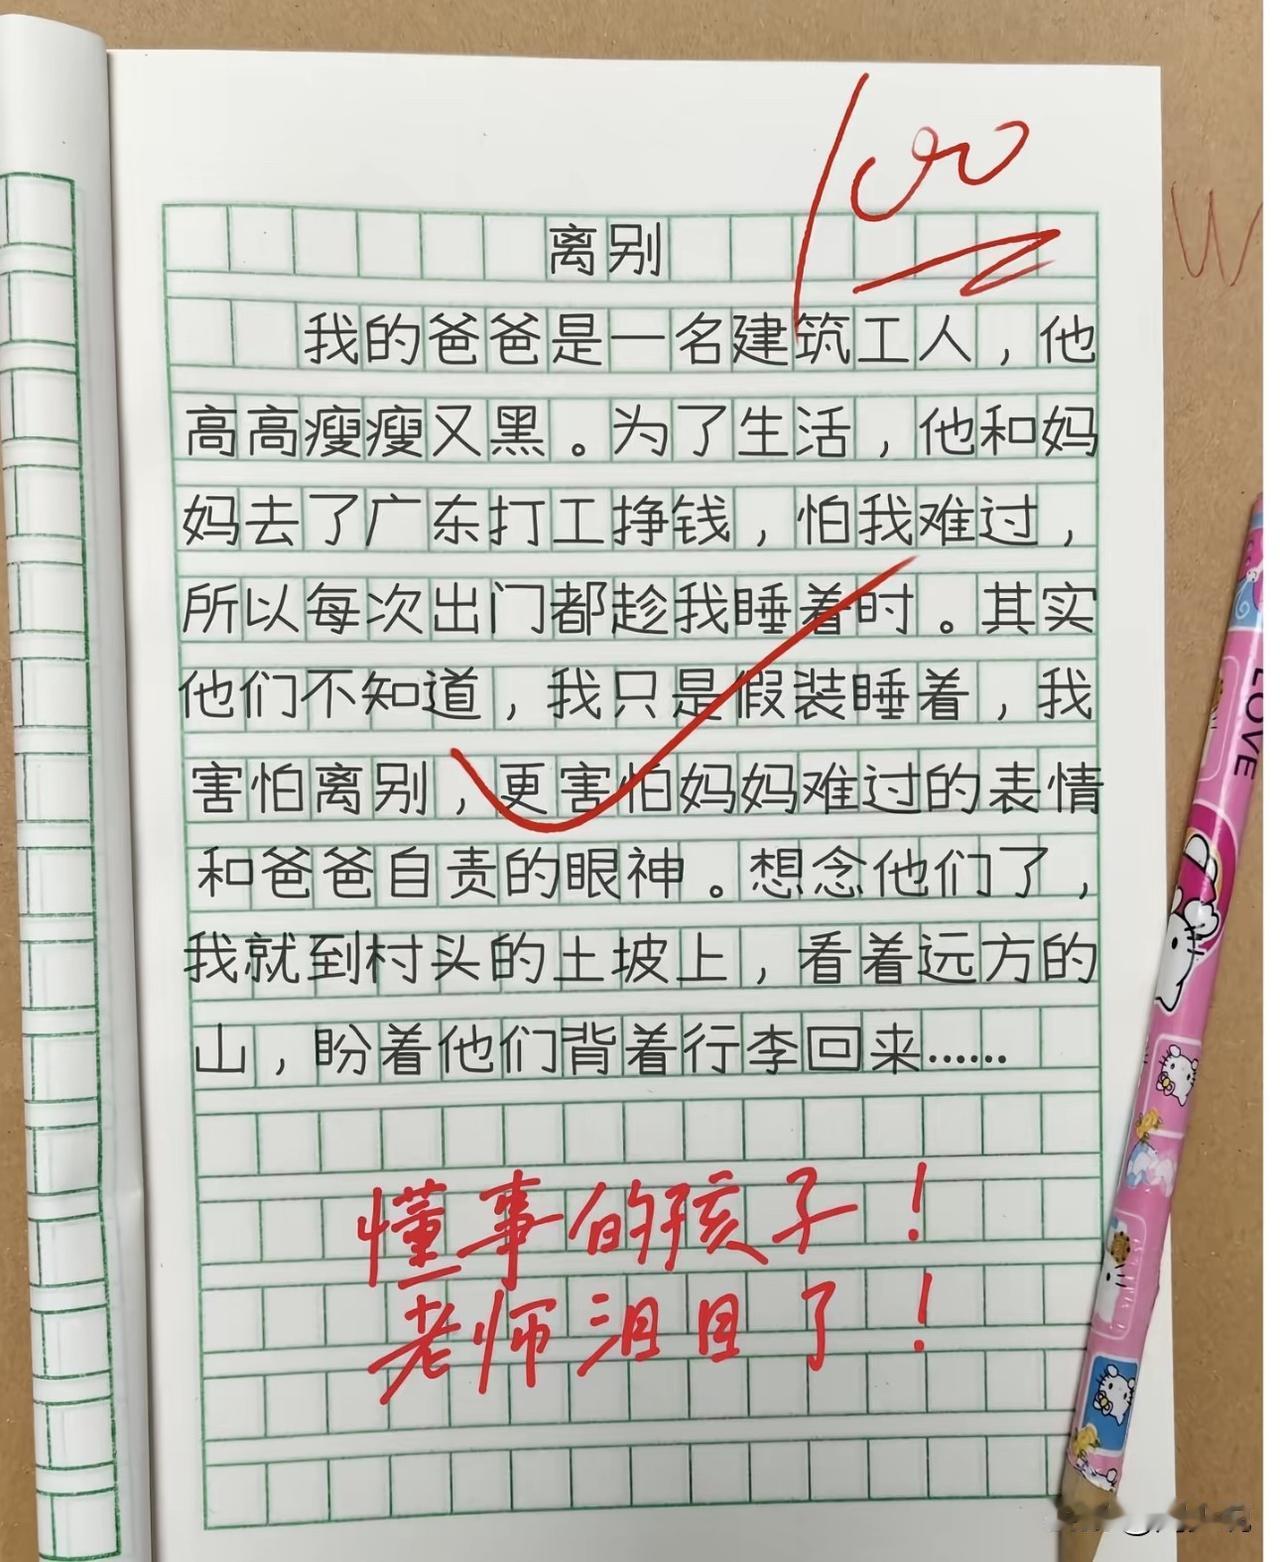 100
离别
我的爸爸是一名建筑工人，他
高高瘦瘦又黑。为了生活，他和妈
妈去了广东打工挣钱，怕我难过，
所以每次出门都趁我睡着时。其实
他们不知道，我只是假装睡着，我
害怕离别，更害怕妈妈难过的表情
和爸爸自责的眼神。想念他们了，
我就到村头的土坡上，看着远方的
山，盼着他们背着行李回来……
懂事的孩子！
老师泪目了！
LOVE
W